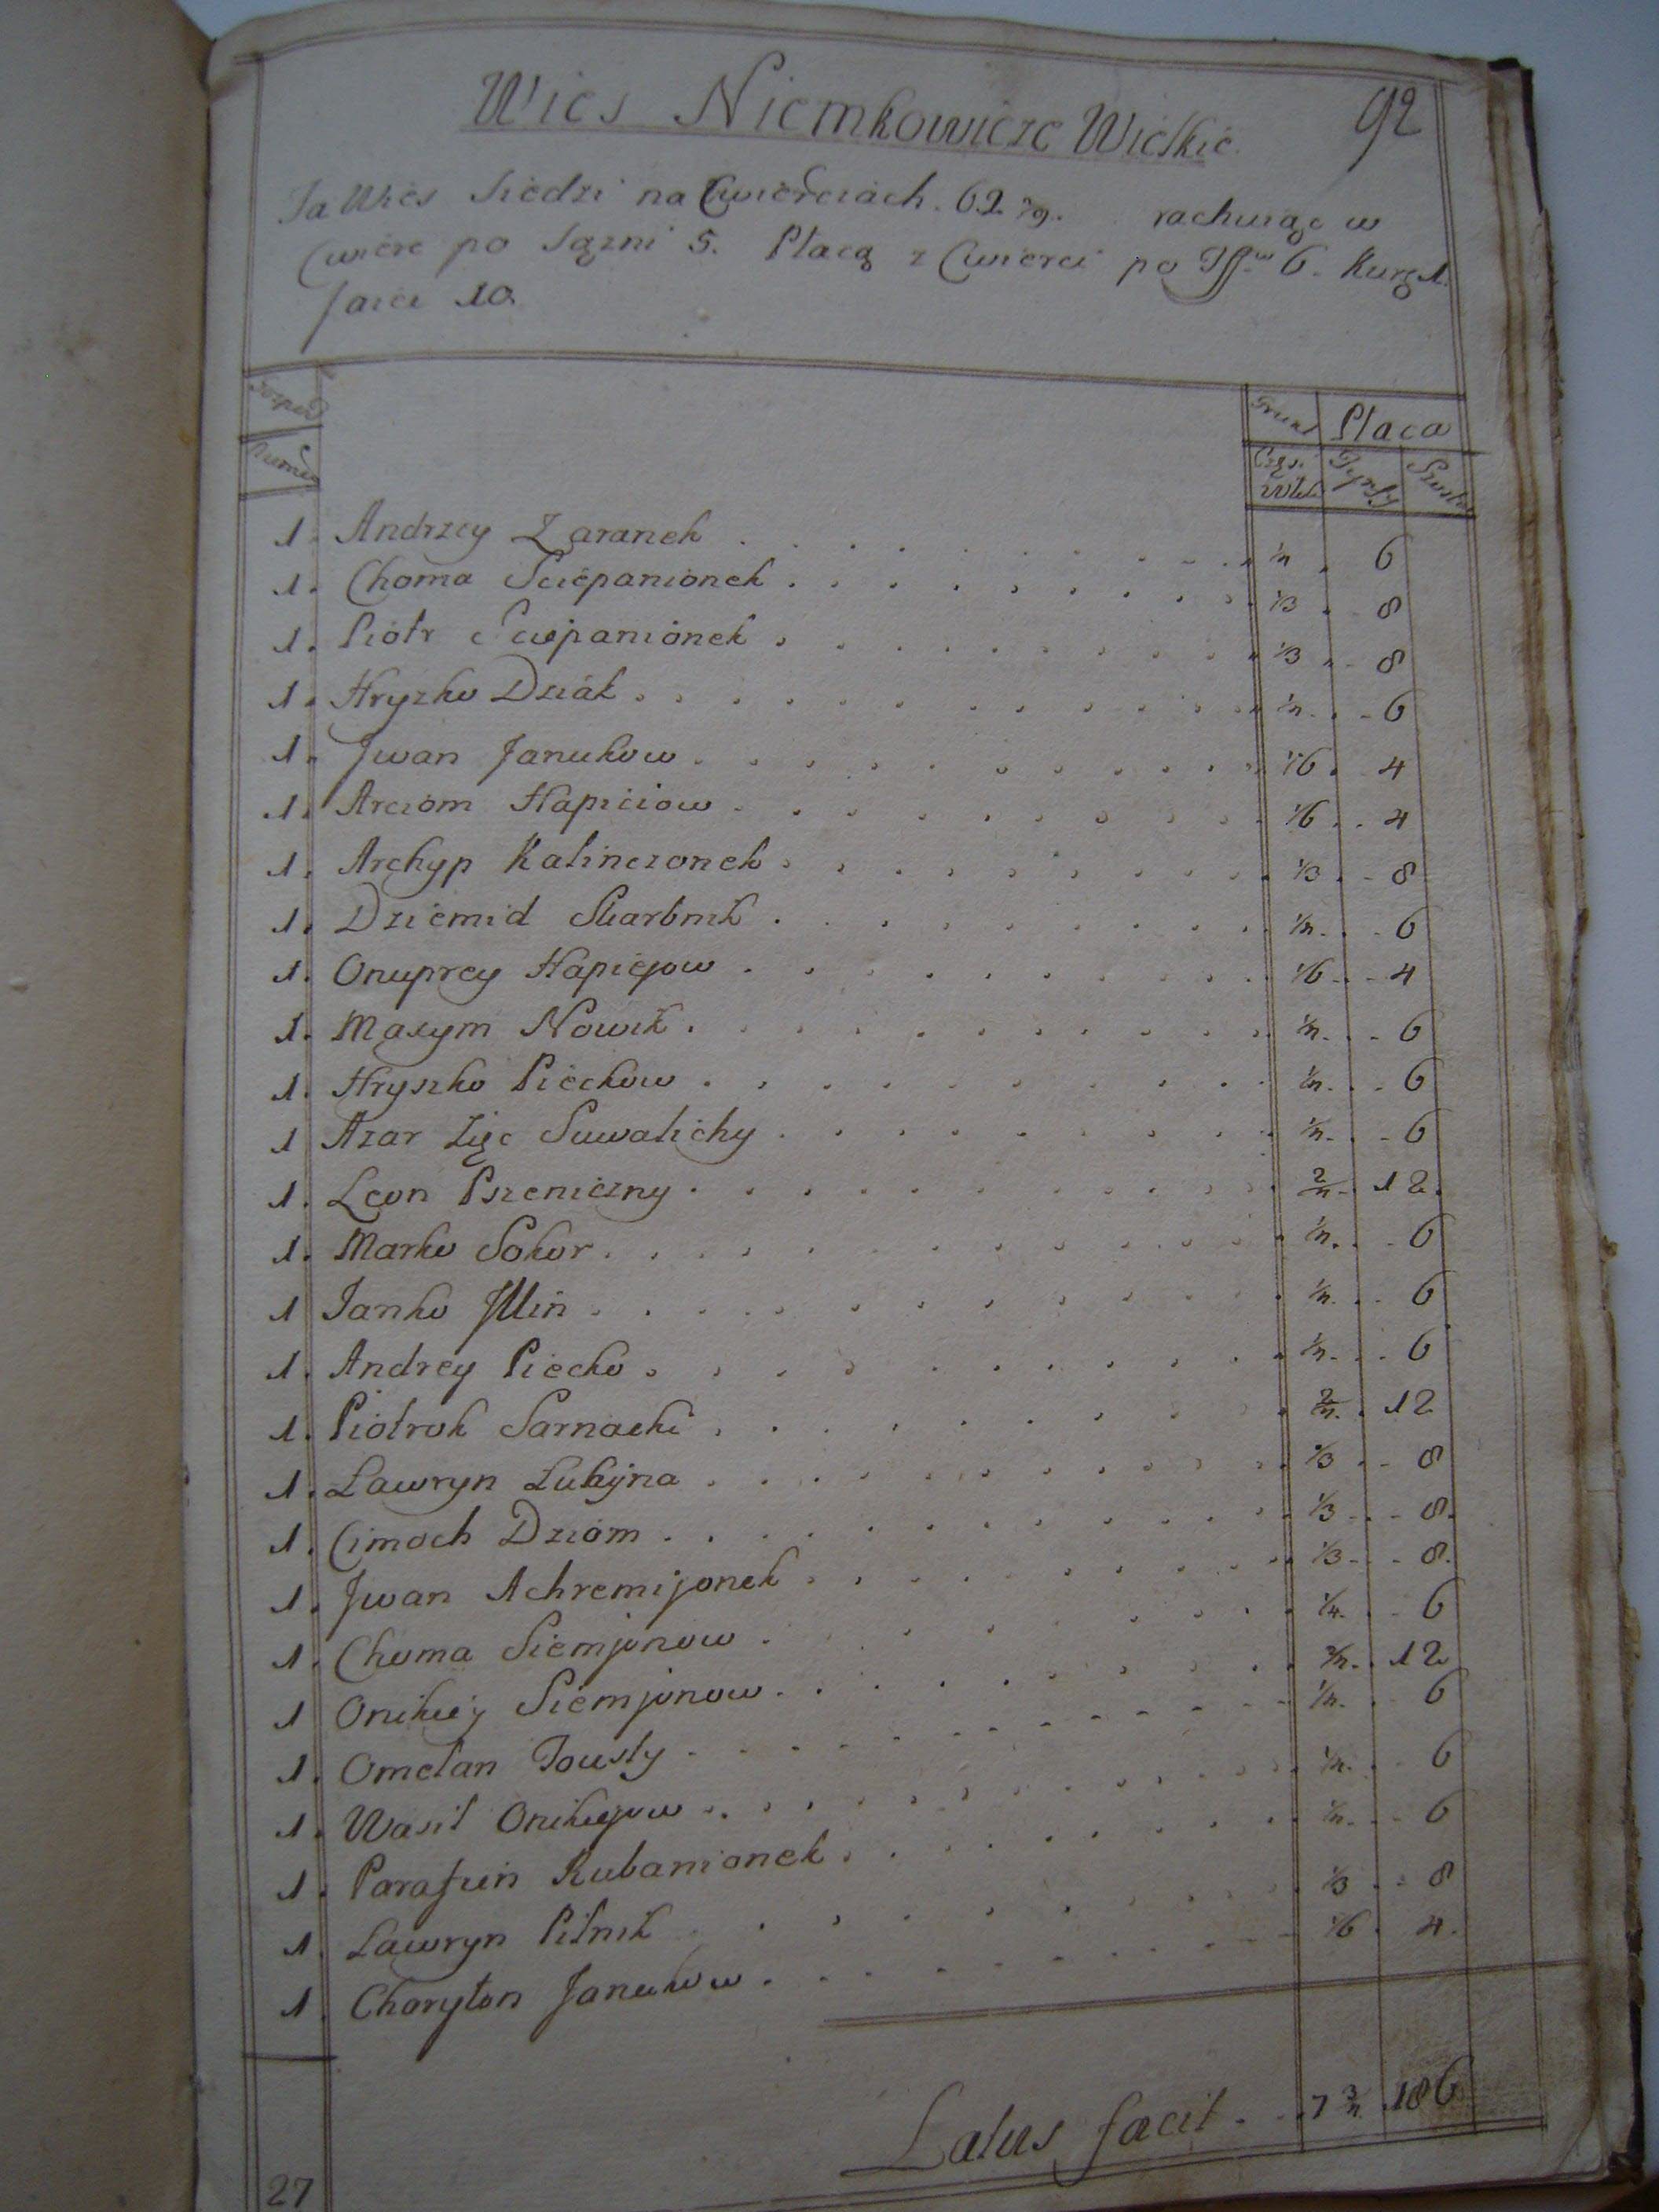 92
Wies Niemkowicze Wielkie.
Ta Wies Siedzi na Cwierciach. 62. rachuiąc w
Cwierc po Sązni 5. Płacą z Cwierci po 6. Kurę 1.
Jaiec 10.
Grunt Płaca
Numer Częs. Włok Tynfy Szosta
1. Andrzey Zaranek 1/4 6
1. Choma Sciepanionek 1/3 8
1. Piotr Sciepanionek 1/3 8
1. Hryzko Dziak 1/4 6
1. Jwan Janukow 1/6 4
1. Arciom Hapiciow 1/6 4
1. Archyp Kalinczonek 1/3 8
1. Dziemid Skarbnik 1/4 6
1. Onuprey Hapiejow 1/6 4
1. Maxym Nowik 1/4 6
1. Hryszko Pieckow 1/4 6
1 Azar Zięc Suwalichy 1/4 6
1. Leon Pszeniczny 2/4 12.
1. Marko Sokor 1/4 6
1 Janko Jllin 1/4 6
1. Andrey Piecko 1/4 6
1. Piotruk Sarnacki 2/4 12
1. Ławryn Łukijna 1/3 8
1. Cimoch Dziom 1/3 8.
1. Jwan Achremijonek 1/3 8.
1. Choma Siemjonow 1/4 6
1 Onikiey Siemjonow 2/4 12
1. Omelan Tousty 1/4 6
1. Wasil Onikiejow 1/4 6
1. Parafien Kubanionek 1/4 6
1. Ławryn Pilnik 1/3 8
1. Charyton Janukow 1/6 4.
27 Latus facit 7 3/4 186